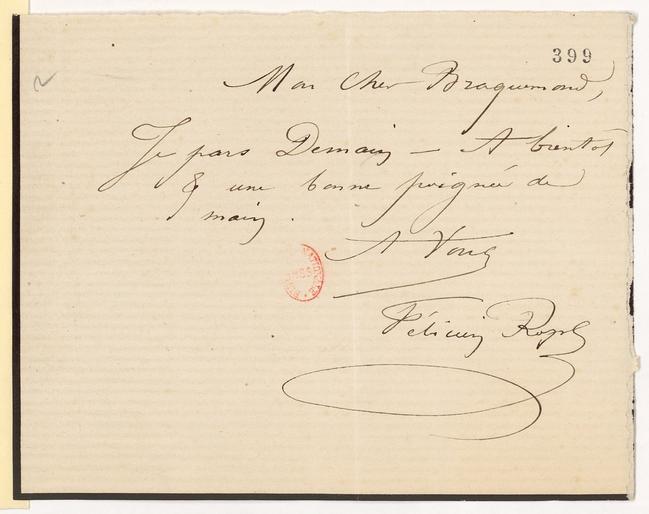 399
2
Mon cher Braquemond,
Je pars Demain — A bientôt
& une bonne poignée de
main.
A Vous
Félicien Rops